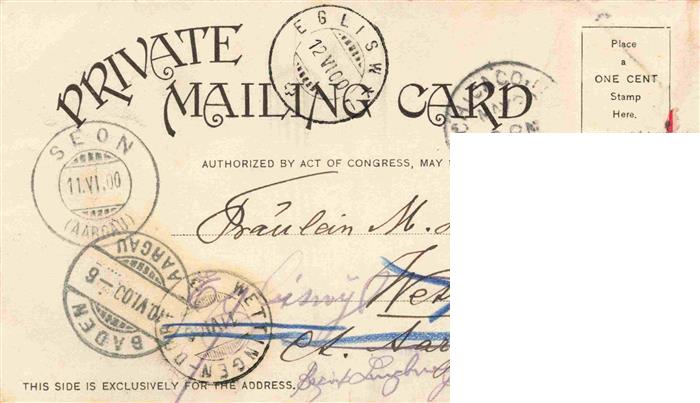 PRIVATE
MAILING CARD
AUTHORIZED BY ACT OF CONGRESS, MAY
Place
a
ONE CENT
Stamp
Here.
EGLISW
12 VI 00
SEON
11.VI.00
(AARGAU)
BADEN
AARGAU
10 VI.00-6
WETTINGEN-DORF
Fräulein M.
Wet
Ct. Aar
THIS SIDE IS EXCLUSIVELY FOR THE ADDRESS.